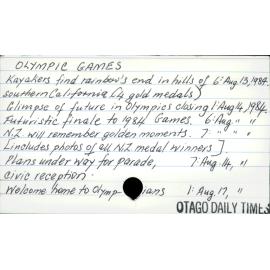 OLYMPIC GAMES
Kayakers find rainbow's end in hills of 6: Aug 13, 1984.
southern California (4 gold medals)
Glimpse of future in Olympics closing 1: Aug 14, 1984.
Futuristic finale to 1984 Games. 6: Aug " "
N.Z will remember golden moments. 7: " " "
[includes photos of all N.Z medal winners].
Plans under way for parade, 7: Aug 14, "
civic reception.
Welcome home to Olympians 1: Aug 17, "
OTAGO DAILY TIMES